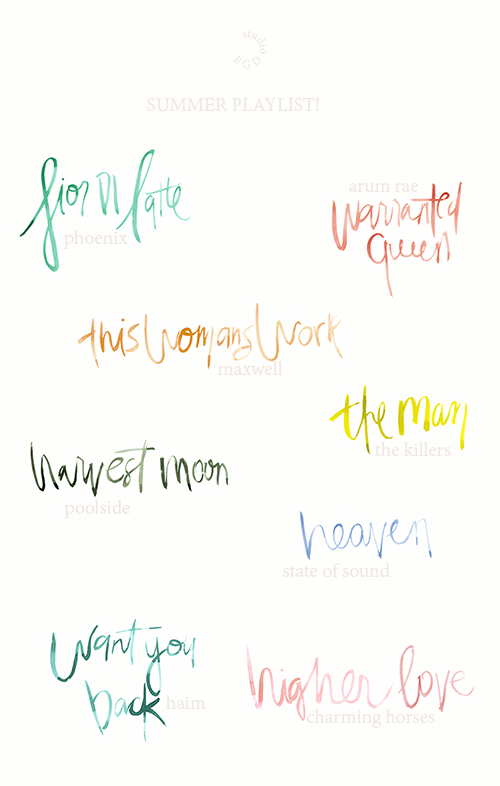 studio
EGD
SUMMER PLAYLIST!
fior di latte
phoenix
arum rae
warranted
queen
this womans work
maxwell
the man
the killers
harvest moon
poolside
heaven
state of sound
want you
back
haim
higher love
charming horses